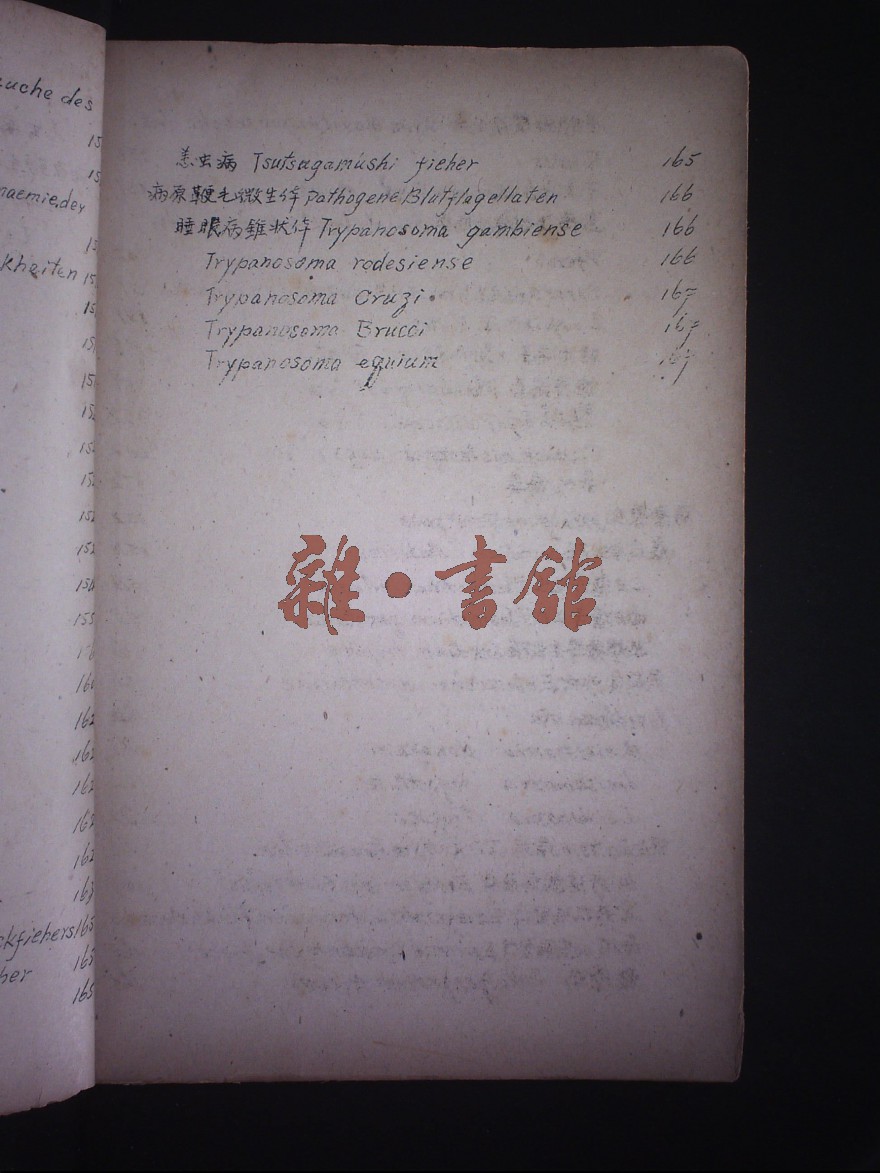 uche des
15
15
naemie, der
15
kheiten 15
15
15
15
15
15
15
152
155
154
155
160
162
162
162
162
162
163
ckfiebers 165
165
her
165
恙虫病 Tsutsugamushi fieher 165
病原鞭毛微生体 pathogene Blutflagellaten 166
睡眠病錐状体 Trypanosoma gambiense 166
Trypanosoma rodesiense 166
Trypanosoma Cruzi 167
Trypanosoma Brucci 167
Trypanosoma equium 167
雜・書館